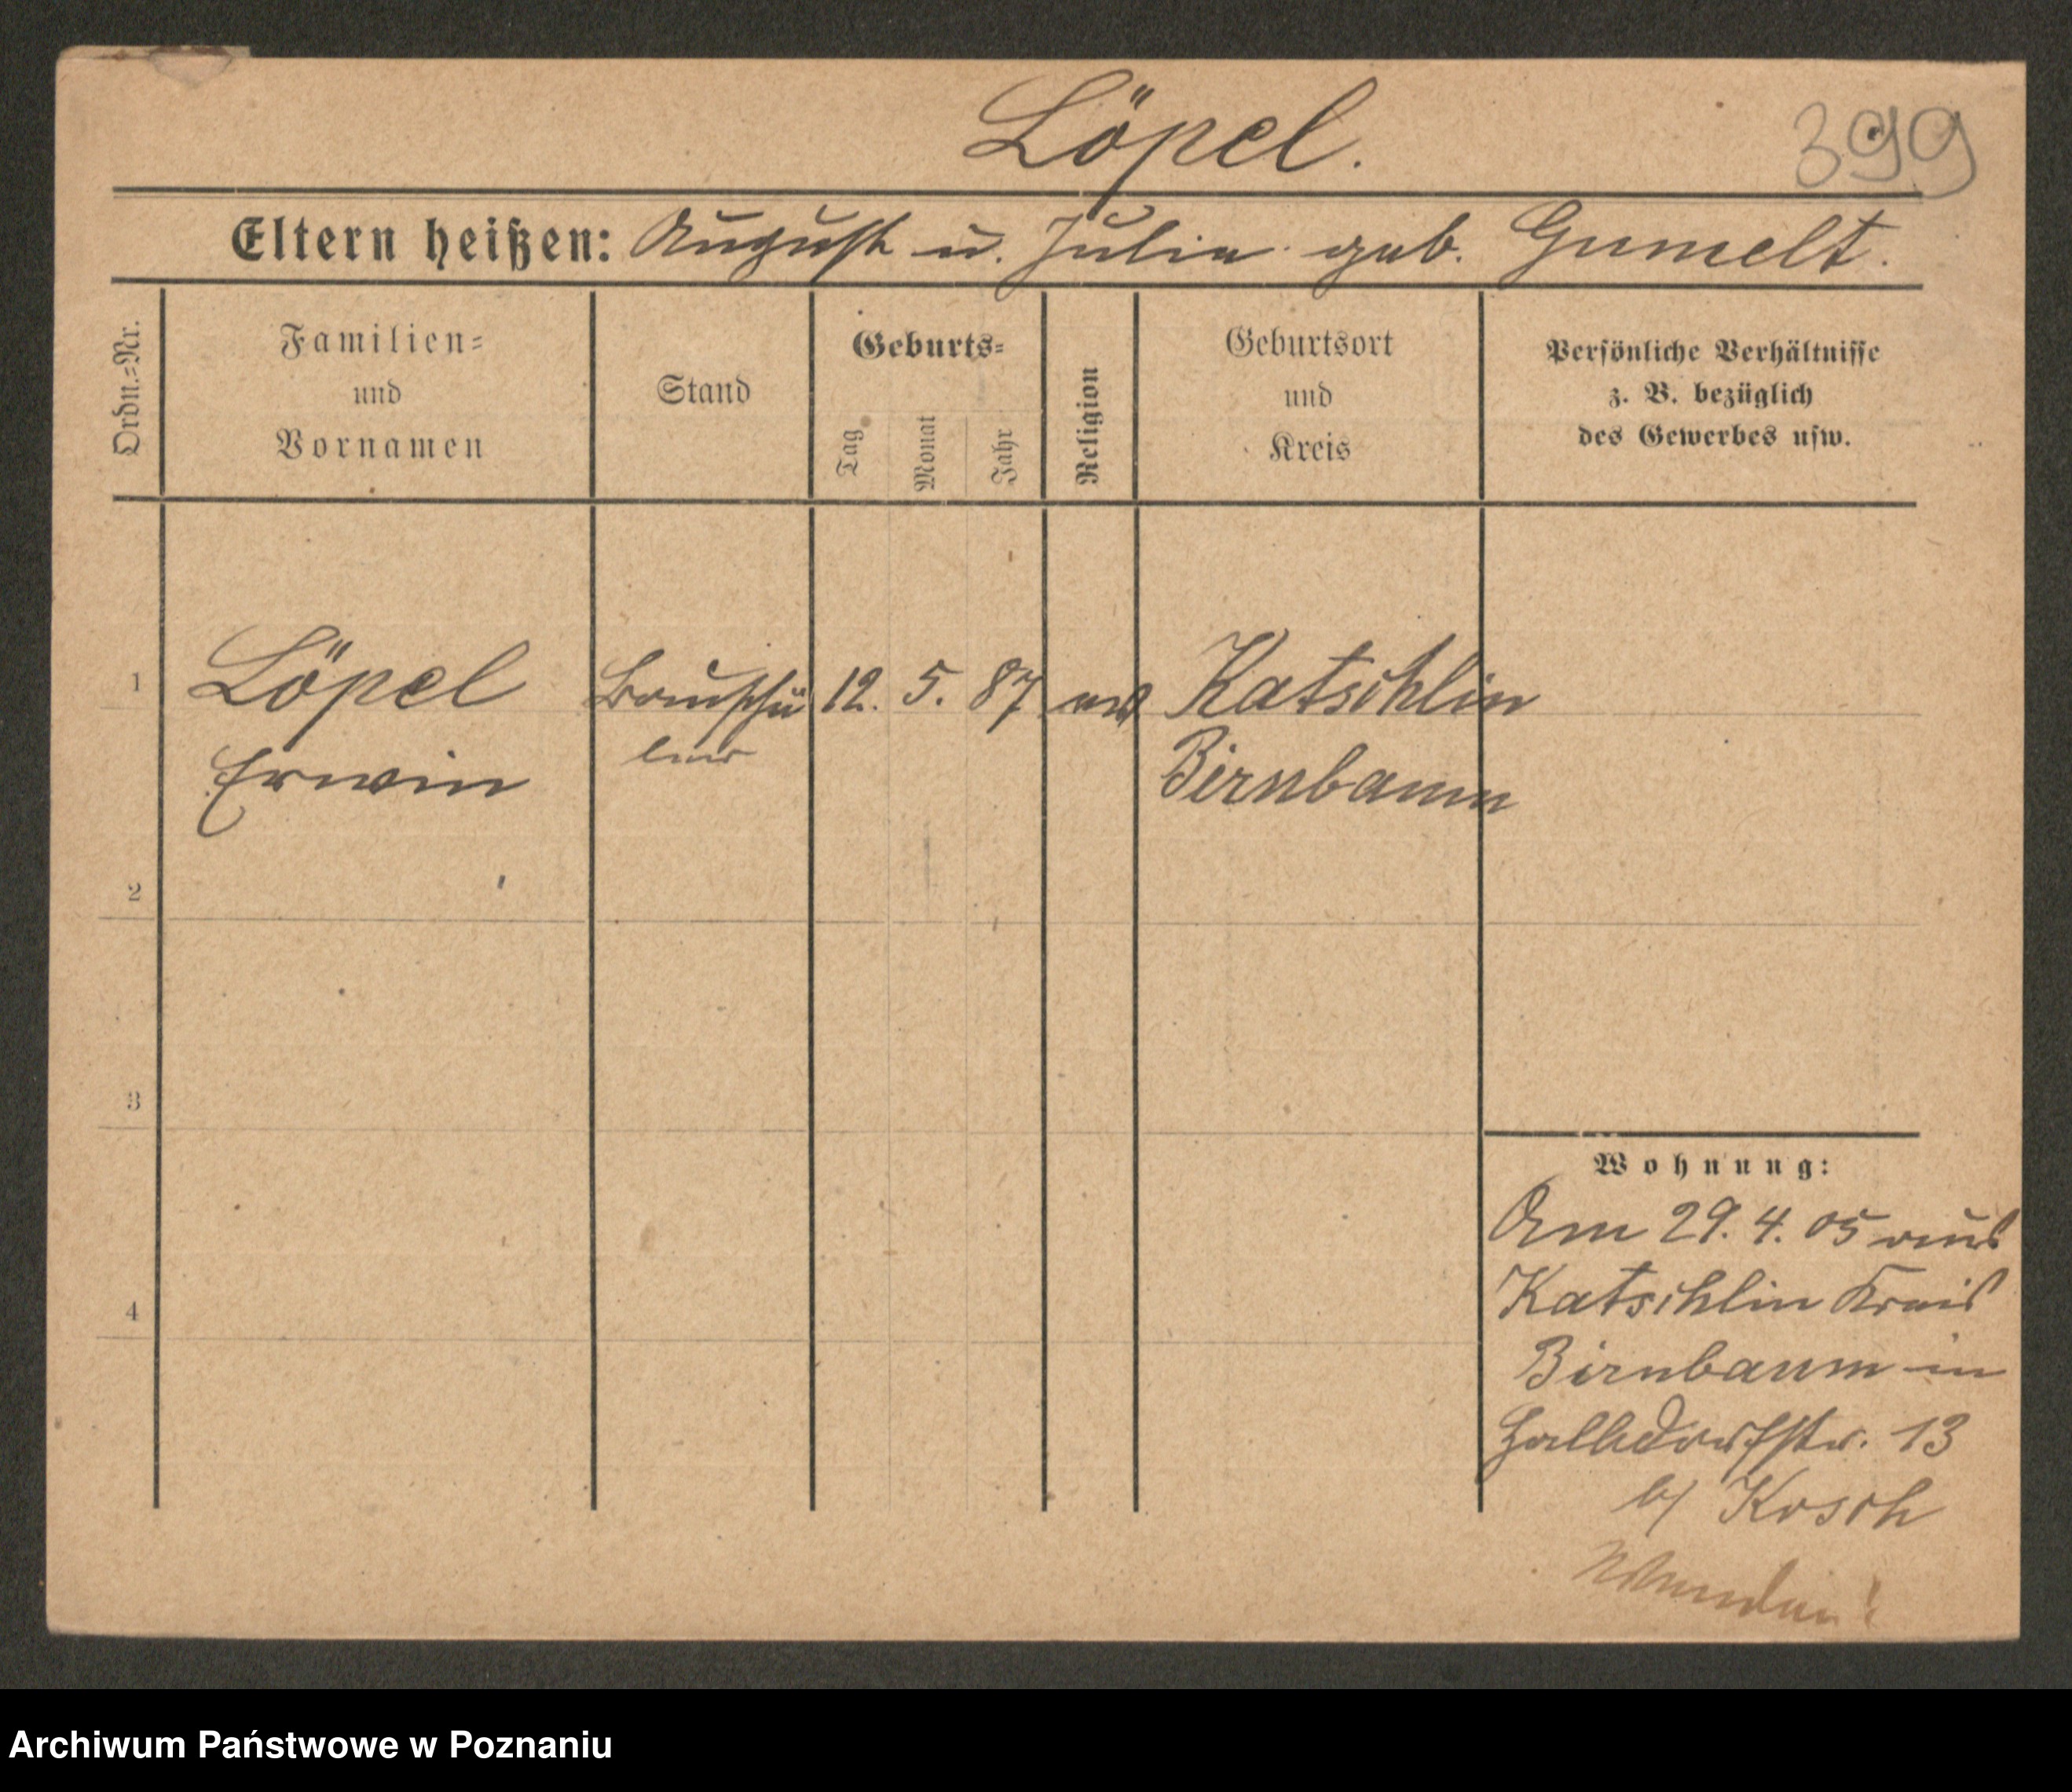 Löpel.
399
Eltern heißen: August u. Julia geb. Gumelt.
Ordn.=Nr.
Familien=
und
Vornamen
Stand
Geburts=
Tag
Monat
Jahr
Religion
Geburtsort
und
Kreis
Persönliche Verhältnisse
z. B. bezüglich
des Gewerbes usw.
1
Löpel Bauschü 12. 5. 87 Katschlin
Erwin ler Birnbaum
2
3
4
Wohnung:
Am 29.4.05 aus
Katschlin Kreis
Birnbaum in
13
b/ Kosch
Archiwum Państwowe w Poznaniu